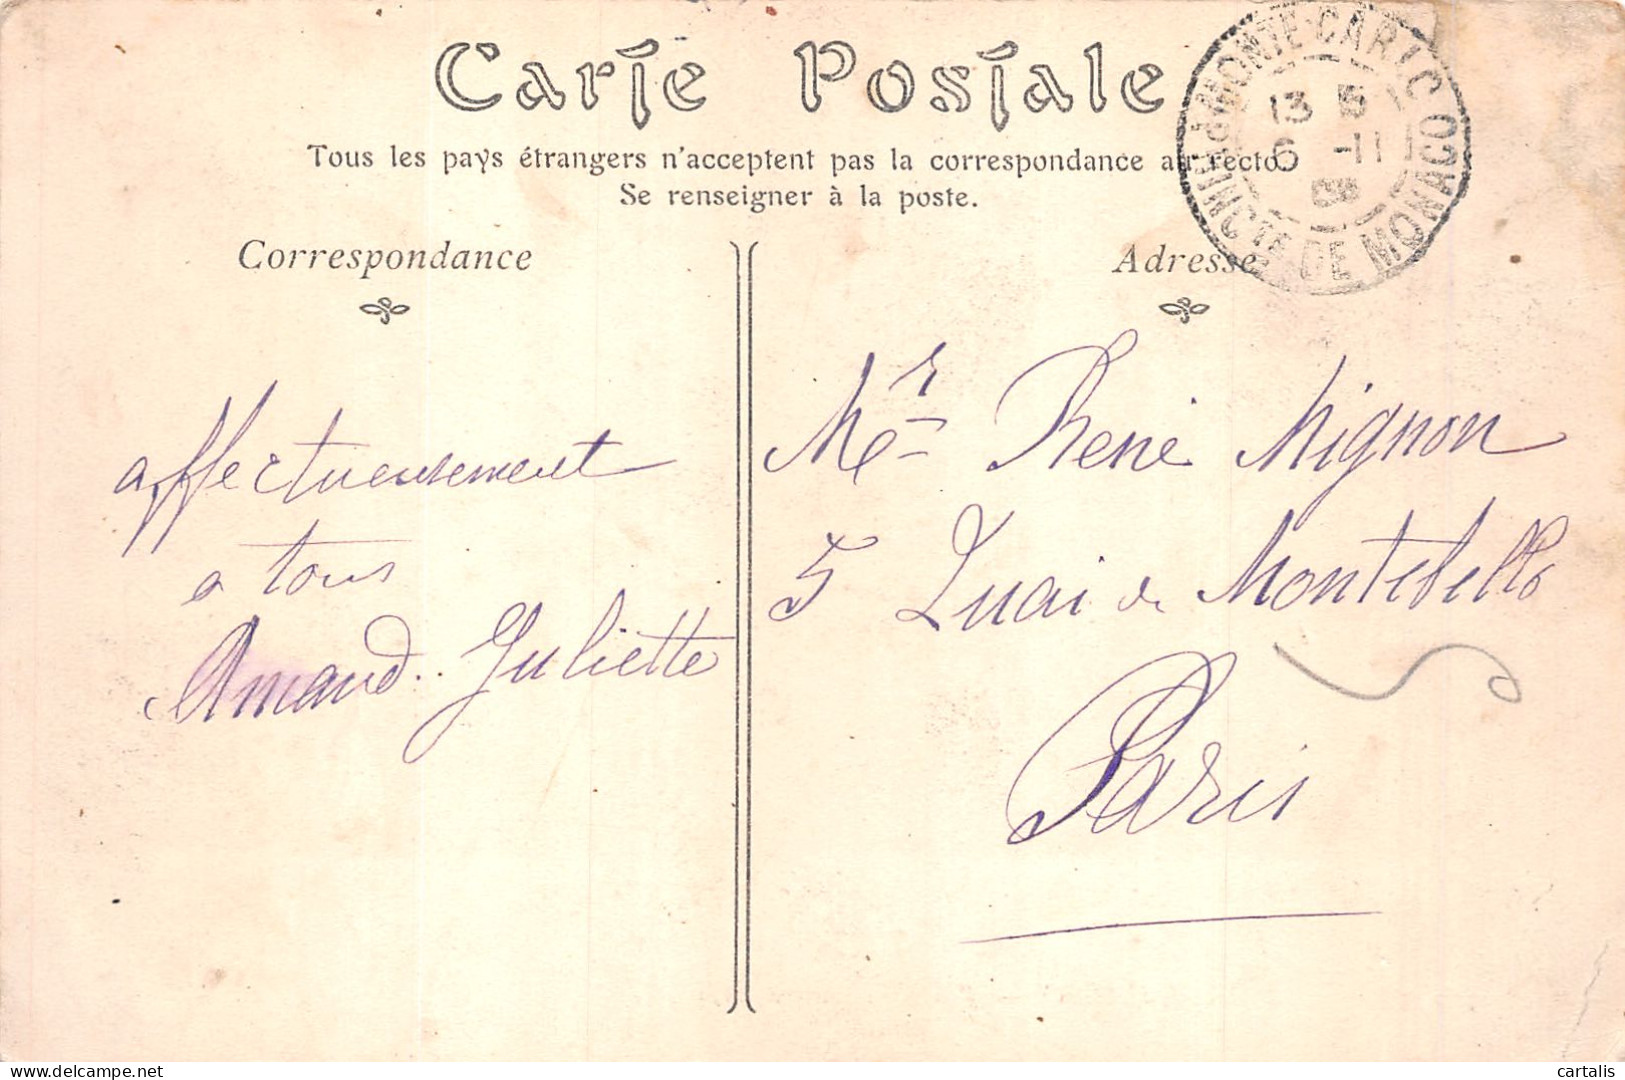 Carte Postale
Tous les pays étrangers n'acceptent pas la correspondance au recto
Se renseigner à la poste.
MONTE-CARLO
PRINCTÉ DE MONACO
13 5
6 -11
08
Correspondance
Adresse
affectueusement
a tous
Amand. Juliette
Mr René Mignon
5 Quai de Montebello
Paris
delcampe.net
cartalis